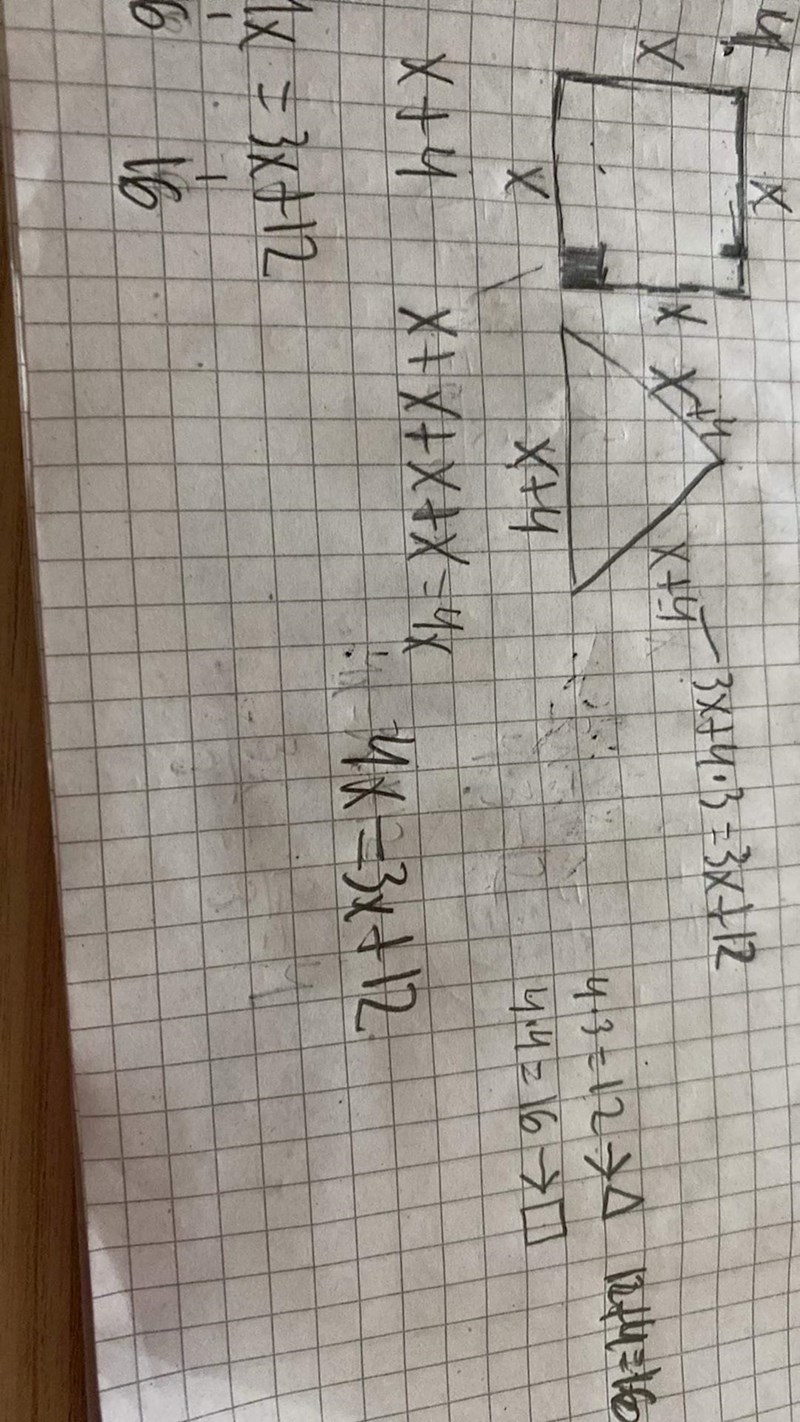 4.
x
x
x
x
x+4
x+4
x+4
3x+4·3=3x+12
4·3=12→△
12+4=16
4·4=16→□
x+4
x+x+x+x=4x
4x=3x+12
4x=3x+12
16
16